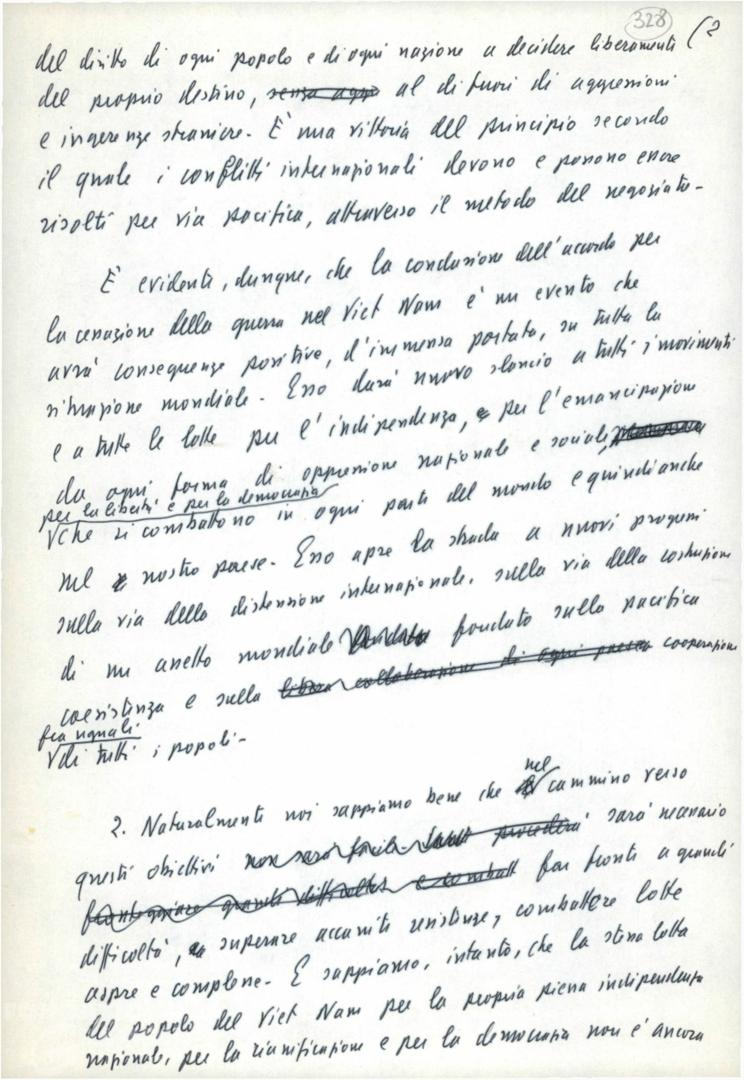 328 (2
del diritto di ogni popolo e di ogni nazione a decidere liberamente
del proprio destino, senza agg al di fuori di aggressioni
e ingerenze straniere. È una vittoria del principio secondo
il quale i conflitti internazionali devono e possono essere
risolti per via pacifica, attraverso il metodo del negoziato.
È evidente, dunque, che la conclusione dell'accordo per
la cessazione della guerra nel Viet Nam è un evento che
avrà conseguenze positive, d'immensa portata, su tutta la
situazione mondiale. Esso darà nuovo slancio a tutti i movimenti
e a tutte le lotte per l'indipendenza, e per l'emancipazione
da ogni forma di oppressione nazionale e sociale,
per la libertà e per la democrazia
che si combattono in ogni parte del mondo e quindi anche
nel nostro paese. Esso apre la strada a nuovi progressi
sulla via della distensione internazionale, sulla via della costruzione
di un assetto mondiale fondato sulla pacifica
coesistenza e sulla libera collaborazione di ogni paese cooperazione
fra uguali
di tutti i popoli.
2. Naturalmente noi sappiamo bene che nel cammino verso
questi obiettivi non sarà facile procedere sarà necessario
fronteggiare grandi difficoltà e combatt far fronte a grandi
difficoltà, superare accanite resistenze, combattere lotte
aspre e complesse. E sappiamo, intanto, che la stessa lotta
del popolo del Viet Nam per la propria piena indipendenza
nazionale, per la riunificazione e per la democrazia non è ancora